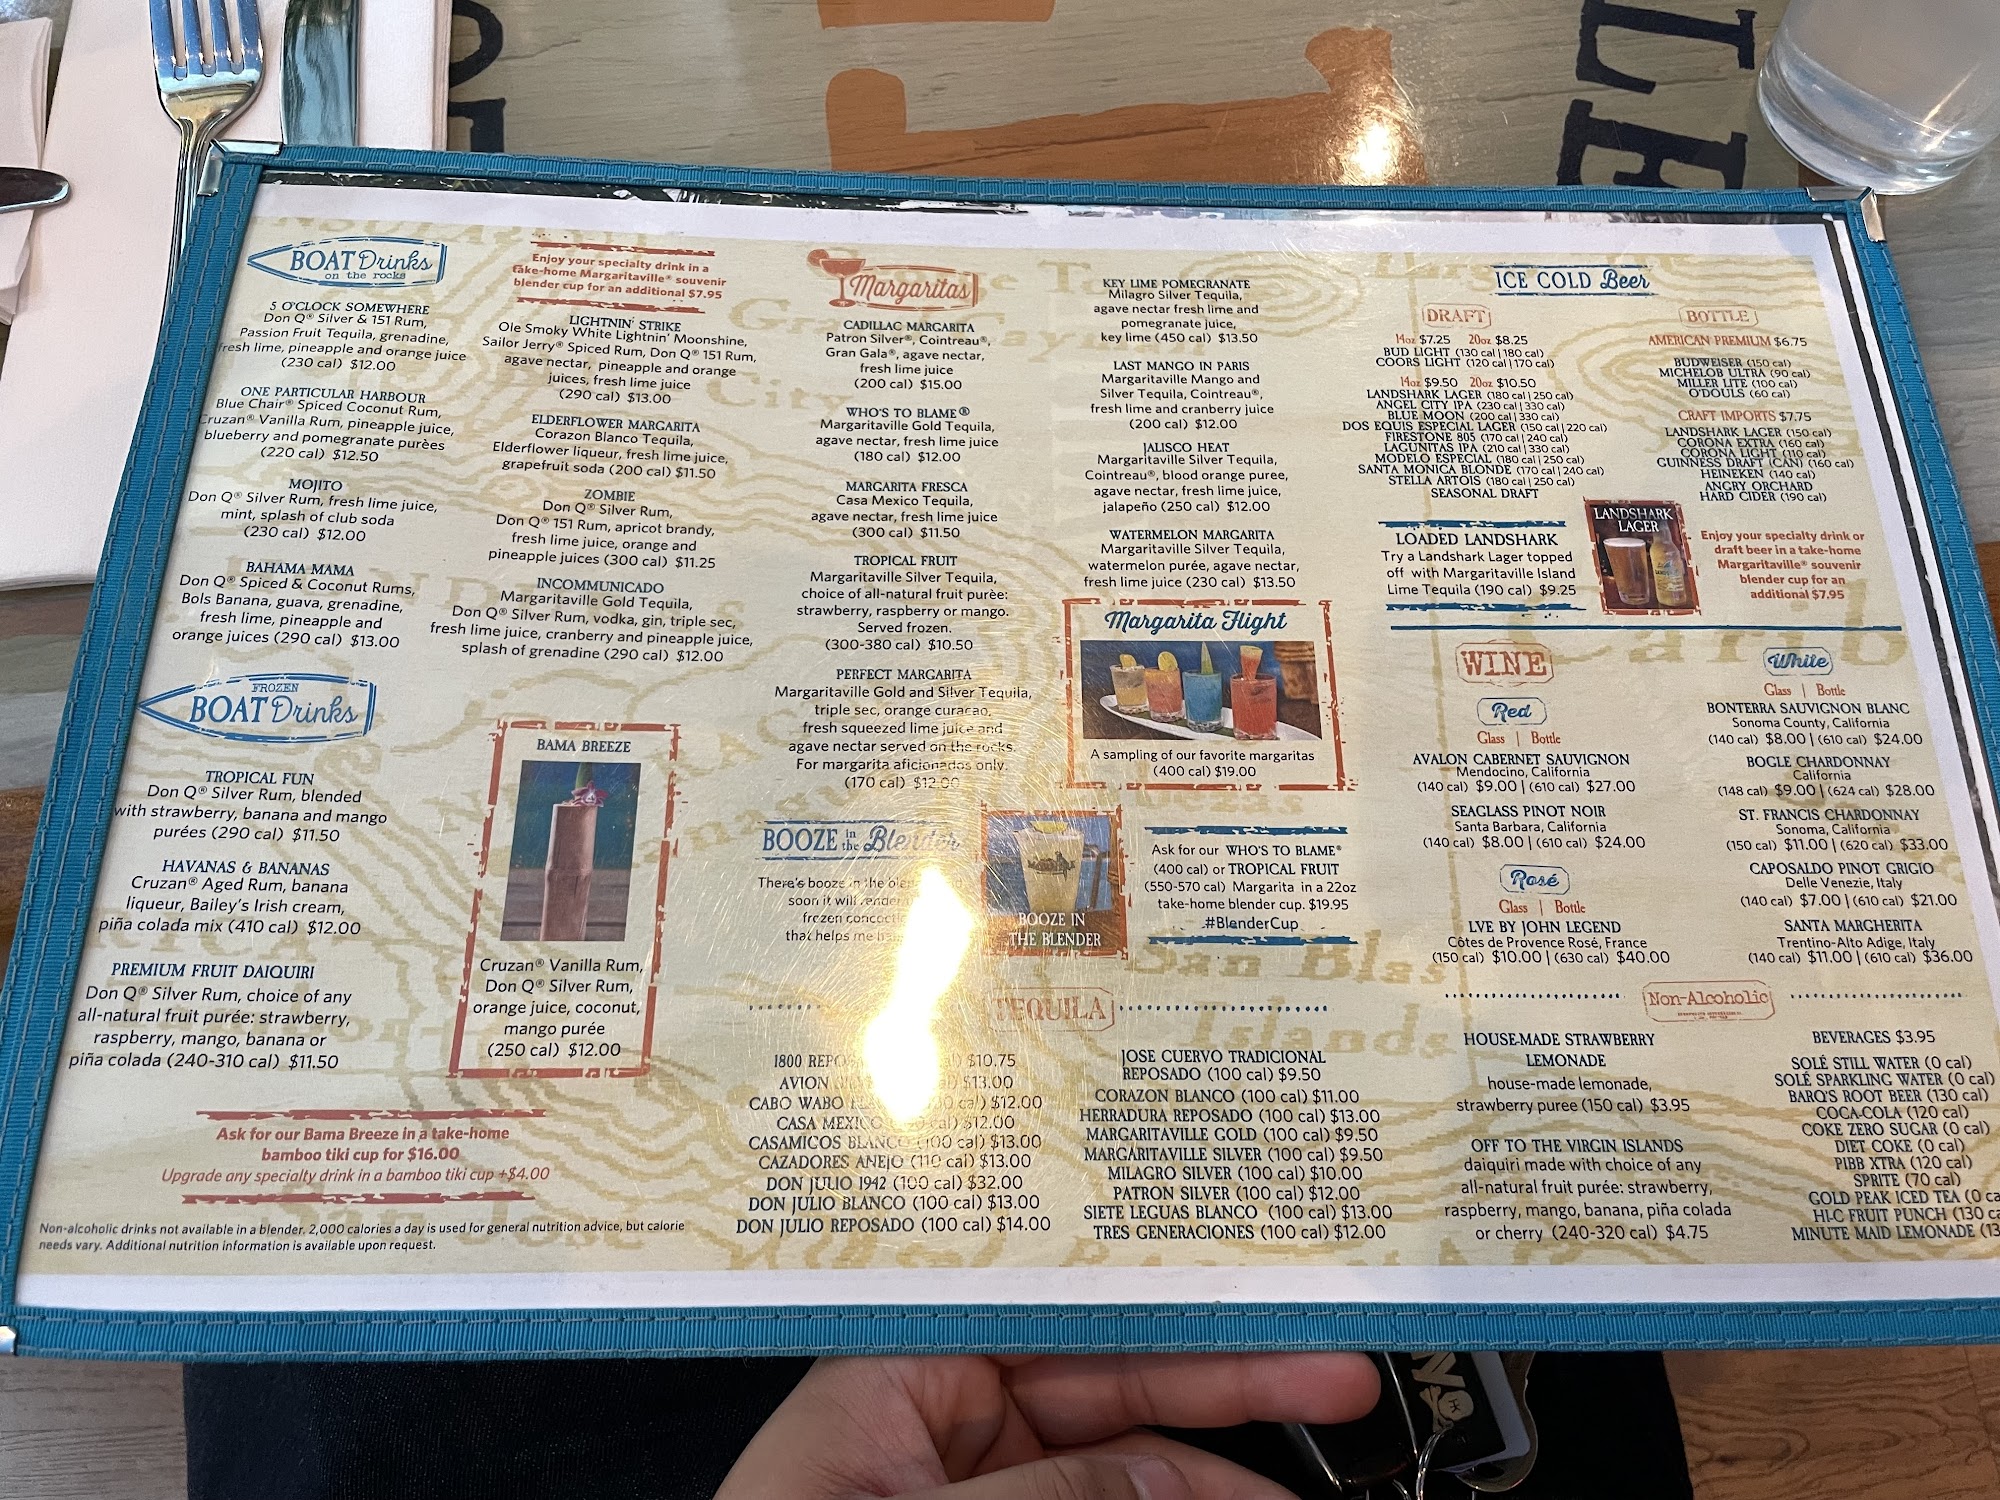 BOAT Drinks
on the rocks
5 O'CLOCK SOMEWHERE
Don Q® Silver & 151 Rum,
Passion Fruit Tequila, grenadine,
fresh lime, pineapple and orange juice
(230 cal) $12.00
ONE PARTICULAR HARBOUR
Blue Chair® Spiced Coconut Rum,
Cruzan® Vanilla Rum, pineapple juice,
blueberry and pomegranate purèes
(220 cal) $12.50
MOJITO
Don Q® Silver Rum, fresh lime juice,
mint, splash of club soda
(230 cal) $12.00
BAHAMA MAMA
Don Q® Spiced & Coconut Rums,
Bols Banana, guava, grenadine,
fresh lime, pineapple and
orange juices (290 cal) $13.00
Enjoy your specialty drink in a
take-home Margaritaville® souvenir
blender cup for an additional $7.95
LIGHTNIN' STRIKE
Ole Smoky White Lightnin' Moonshine,
Sailor Jerry® Spiced Rum, Don Q® 151 Rum,
agave nectar, pineapple and orange
juices, fresh lime juice
(290 cal) $13.00
ELDERFLOWER MARGARITA
Corazon Blanco Tequila,
Elderflower liqueur, fresh lime juice,
grapefruit soda (200 cal) $11.50
ZOMBIE
Don Q® Silver Rum,
Don Q® 151 Rum, apricot brandy,
fresh lime juice, orange and
pineapple juices (300 cal) $11.25
INCOMMUNICADO
Margaritaville Gold Tequila,
Don Q® Silver Rum, vodka, gin, triple sec,
fresh lime juice, cranberry and pineapple juice,
splash of grenadine (290 cal) $12.00
FROZEN
BOAT Drinks
TROPICAL FUN
Don Q® Silver Rum, blended
with strawberry, banana and mango
purées (290 cal) $11.50
HAVANAS & BANANAS
Cruzan® Aged Rum, banana
liqueur, Bailey's Irish cream,
piña colada mix (410 cal) $12.00
PREMIUM FRUIT DAIQUIRI
Don Q® Silver Rum, choice of any
all-natural fruit purée: strawberry,
raspberry, mango, banana or
piña colada (240-310 cal) $11.50
BAMA BREEZE
Cruzan® Vanilla Rum,
Don Q® Silver Rum,
orange juice, coconut,
mango purée
(250 cal) $12.00
Ask for our Bama Breeze in a take-home
bamboo tiki cup for $16.00
Upgrade any specialty drink in a bamboo tiki cup +$4.00
Non-alcoholic drinks not available in a blender. 2,000 calories a day is used for general nutrition advice, but calorie
needs vary. Additional nutrition information is available upon request.
Margaritas
CADILLAC MARGARITA
Patron Silver®, Cointreau®,
Gran Gala®, agave nectar,
fresh lime juice
(200 cal) $15.00
WHO'S TO BLAME®
Margaritaville Gold Tequila,
agave nectar, fresh lime juice
(180 cal) $12.00
MARGARITA FRESCA
Casa Mexico Tequila,
agave nectar, fresh lime juice
(300 cal) $11.50
TROPICAL FRUIT
Margaritaville Silver Tequila,
choice of all-natural fruit purèe:
strawberry, raspberry or mango.
Served frozen.
(300-380 cal) $10.50
PERFECT MARGARITA
Margaritaville Gold and Silver Tequila,
triple sec, orange curacao,
fresh squeezed lime juice and
agave nectar served on the rocks.
For margarita aficionados only.
(170 cal) $12.00
KEY LIME POMEGRANATE
Milagro Silver Tequila,
agave nectar fresh lime and
pomegranate juice,
key lime (450 cal) $13.50
LAST MANGO IN PARIS
Margaritaville Mango and
Silver Tequila, Cointreau®,
fresh lime and cranberry juice
(200 cal) $12.00
JALISCO HEAT
Margaritaville Silver Tequila,
Cointreau®, blood orange puree,
agave nectar, fresh lime juice,
jalapeño (250 cal) $12.00
WATERMELON MARGARITA
Margaritaville Silver Tequila,
watermelon purée, agave nectar,
fresh lime juice (230 cal) $13.50
Margarita Flight
A sampling of our favorite margaritas
(400 cal) $19.00
BOOZE in the Blender
There's booze in the
soon it will render
frozen
that helps me
BOOZE IN
THE BLENDER
Ask for our WHO'S TO BLAME®
(400 cal) or TROPICAL FRUIT
(550-570 cal) Margarita in a 22oz
take-home blender cup. $19.95
#BlenderCup
TEQUILA
1800 $10.75
AVION $13.00
CABO WABO $12.00
CASA MEXICO $12.00
CASAMIGOS BLANCO (100 cal) $13.00
CAZADORES ANEJO (110 cal) $13.00
DON JULIO 1942 (100 cal) $32.00
DON JULIO BLANCO (100 cal) $13.00
DON JULIO REPOSADO (100 cal) $14.00
JOSE CUERVO TRADICIONAL
REPOSADO (100 cal) $9.50
CORAZON BLANCO (100 cal) $11.00
HERRADURA REPOSADO (100 cal) $13.00
MARGARITAVILLE GOLD (100 cal) $9.50
MARGARITAVILLE SILVER (100 cal) $9.50
MILAGRO SILVER (100 cal) $10.00
PATRON SILVER (100 cal) $12.00
SIETE LEGUAS BLANCO (100 cal) $13.00
TRES GENERACIONES (100 cal) $12.00
ICE COLD Beer
DRAFT
14oz $7.25 20oz $8.25
BUD LIGHT (130 cal | 180 cal)
COORS LIGHT (120 cal | 170 cal)
14oz $9.50 20oz $10.50
LANDSHARK LAGER (180 cal | 250 cal)
ANGEL CITY IPA (230 cal | 330 cal)
BLUE MOON (200 cal | 330 cal)
DOS EQUIS ESPECIAL LAGER (150 cal | 220 cal)
FIRESTONE 805 (170 cal | 240 cal)
LAGUNITAS IPA (210 cal | 330 cal)
MODELO ESPECIAL (180 cal | 250 cal)
SANTA MONICA BLONDE (170 cal | 240 cal)
STELLA ARTOIS (180 cal | 250 cal)
SEASONAL DRAFT
BOTTLE
AMERICAN PREMIUM $6.75
BUDWEISER (150 cal)
MICHELOB ULTRA (90 cal)
MILLER LITE (100 cal)
O'DOULS (60 cal)
CRAFT IMPORTS $7.75
LANDSHARK LAGER (150 cal)
CORONA EXTRA (160 cal)
CORONA LIGHT (110 cal)
GUINNESS DRAFT (CAN) (160 cal)
HEINEKEN (140 cal)
ANGRY ORCHARD
HARD CIDER (190 cal)
LOADED LANDSHARK
Try a Landshark Lager topped
off with Margaritaville Island
Lime Tequila (190 cal) $9.25
LANDSHARK
LAGER
Enjoy your specialty drink or
draft beer in a take-home
Margaritaville® souvenir
blender cup for an
additional $7.95
WINE
Red
Glass | Bottle
AVALON CABERNET SAUVIGNON
Mendocino, California
(140 cal) $9.00 | (610 cal) $27.00
SEAGLASS PINOT NOIR
Santa Barbara, California
(140 cal) $8.00 | (610 cal) $24.00
Rosé
Glass | Bottle
LVE BY JOHN LEGEND
Côtes de Provence Rosé, France
(150 cal) $10.00 | (630 cal) $40.00
White
Glass | Bottle
BONTERRA SAUVIGNON BLANC
Sonoma County, California
(140 cal) $8.00 | (610 cal) $24.00
BOGLE CHARDONNAY
California
(148 cal) $9.00 | (624 cal) $28.00
ST. FRANCIS CHARDONNAY
Sonoma, California
(150 cal) $11.00 | (620 cal) $33.00
CAPOSALDO PINOT GRIGIO
Delle Venezie, Italy
(140 cal) $7.00 | (610 cal) $21.00
SANTA MARGHERITA
Trentino-Alto Adige, Italy
(140 cal) $11.00 | (610 cal) $36.00
Non-Alcoholic
HOUSE-MADE STRAWBERRY
LEMONADE
house-made lemonade,
strawberry puree (150 cal) $3.95
OFF TO THE VIRGIN ISLANDS
daiquiri made with choice of any
all-natural fruit purée: strawberry,
raspberry, mango, banana, piña colada
or cherry (240-320 cal) $4.75
BEVERAGES $3.95
SOLÉ STILL WATER (0 cal)
SOLÉ SPARKLING WATER (0 cal)
BARQ'S ROOT BEER (130 cal)
COCA-COLA (120 cal)
COKE ZERO SUGAR (0 cal)
DIET COKE (0 cal)
PIBB XTRA (120 cal)
SPRITE (70 cal)
GOLD PEAK ICED TEA (0 ca
HI-C FRUIT PUNCH (130 ca
MINUTE MAID LEMONADE (13